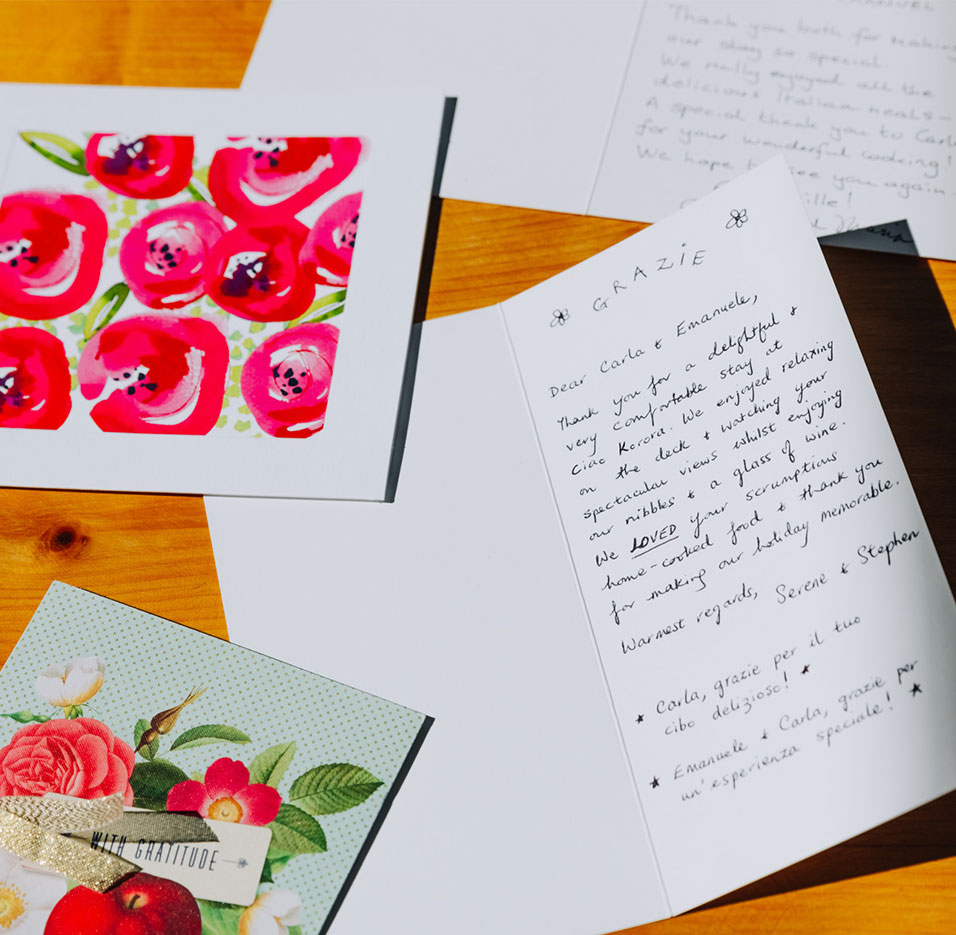 Thank you both for making
our stay so special.
We really enjoyed all the
delicious Italian meals –
A special thank you to Carla
for your wonderful cooking!
We hope to see you again
GRAZIE
Dear Carla & Emanuele,
Thank you for a delightful &
very comfortable stay at
Ciao Korora. We enjoyed relaxing
on the deck & watching your
spectacular views whilst enjoying
our nibbles & a glass of wine.
We LOVED your scrumptious
home-cooked food & thank you
for making our holiday memorable.
Warmest regards, Serene & Stephen
★ Carla, grazie per il tuo
cibo delizioso! ★
★ Emanuele & Carla, grazie per
un'esperienza speciale! ★
WITH GRATITUDE